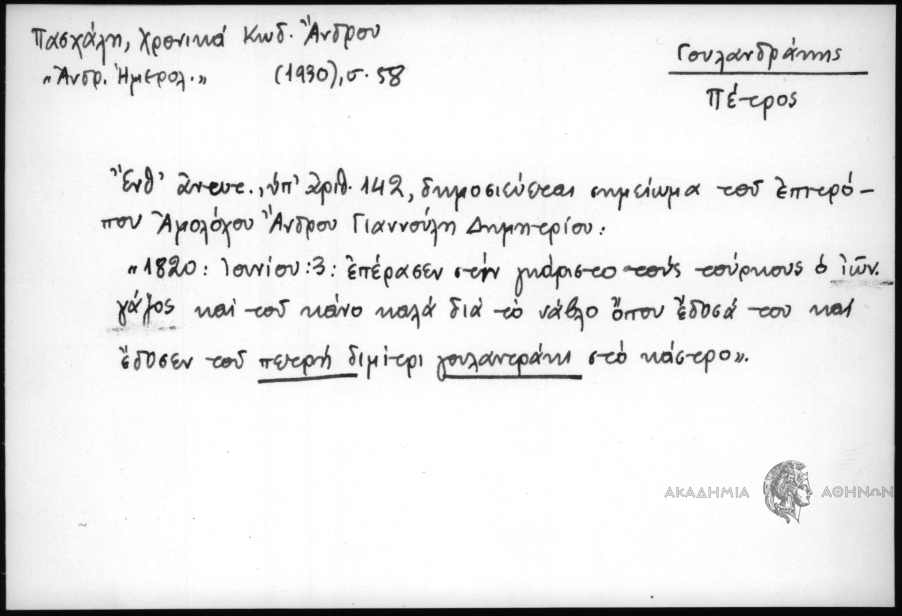 Πασχάλη, Χρονικά Κωδ. Ἄνδρου
«Ἀνδρ. Ἡμερολ.» (1930), σ. 58
Γουλανδράκης
Πέτρος
Ἔνθ' ἀνωτ., ὑπ' ἀριθ. 142, δημοσιεύεται σημείωμα τοῦ ἐπιτρό-
που Ἀμολόχου Ἄνδρου Γιαννούλη Δημητρίου:
«1820: Ἰουνίου: 3: ἐπέρασεν στὴν γκάριστο τοὺς τούρκους ὁ ἰῶν.
γάζος καὶ τοῦ κάνο καλὰ διὰ τὸ νάβλο ὅπου ἔδοσά του καὶ
ἔδοσεν τοῦ πετρὴ διμίτρι γουλαντράκι στὸ κάστρο».
ΑΚΑΔΗΜΙΑ ΑΘΗΝΩΝ